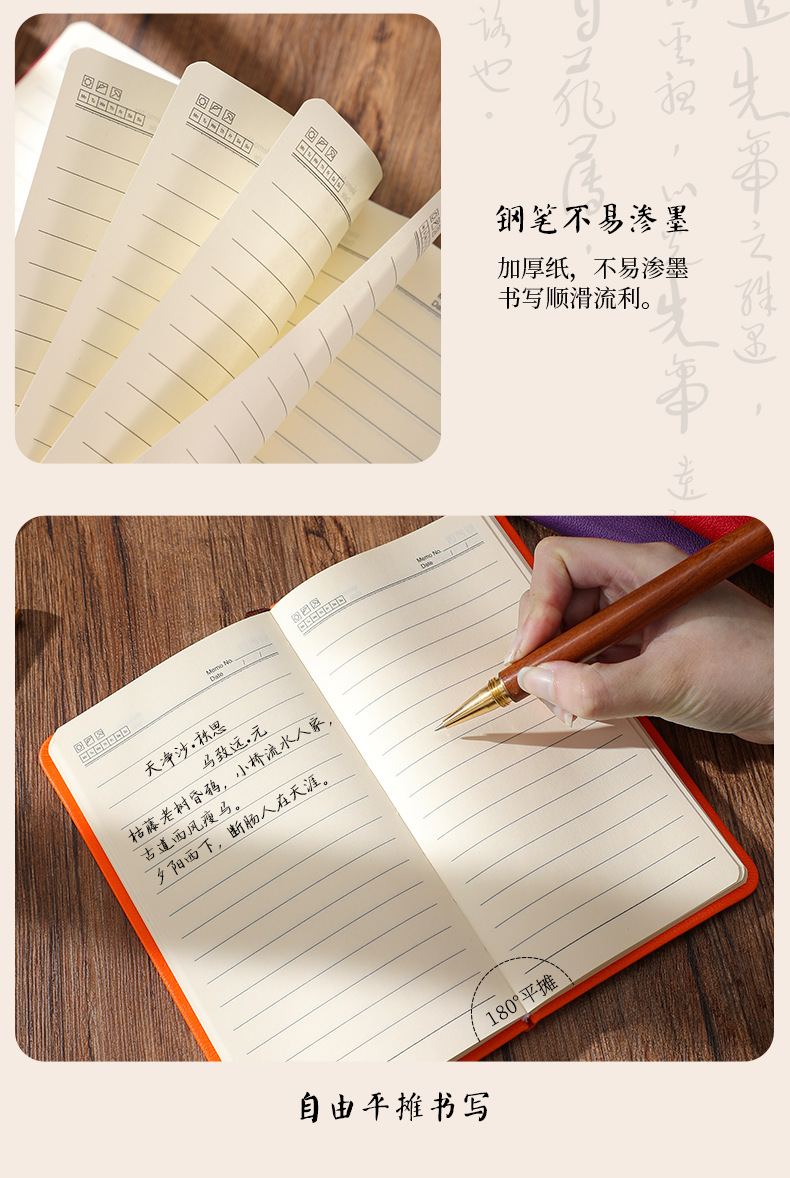 钢笔不易渗墨
加厚纸，不易渗墨
书写顺滑流利。
先帝之殊遇，
先帝遗
菲薄，
Memo No.
Date / /
Memo No.
Date / /
天净沙·秋思
马致远·元
枯藤老树昏鸦，小桥流水人家，
古道西风瘦马。
夕阳西下，断肠人在天涯。
180°平摊
自由平摊书写